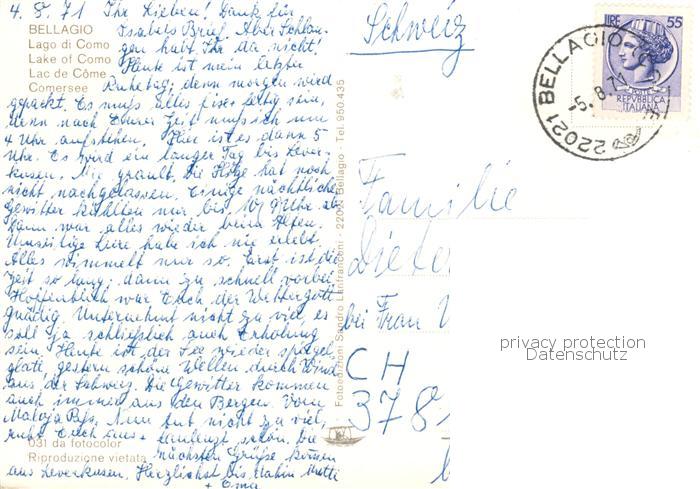 4.8.71 Ihr Lieben! Dank für
BELLAGIO
Isabels Brief. Aber Schlan-
Lago di Como
gen habt Ihr da nicht!
Lake of Como
Heute ist mein letzter
Lac de Côme
Ruhetag, denn morgen wird
Comersee
gepackt. Es muss alles fertig sein,
denn nach Eurer Zeit muss ich um
4 Uhr aufstehen. Hier ist es dann 5
Uhr. Es wird ein langer Tag bis Lever-
kusen. Mir grault. Die Hitze hat noch
nicht nachgelassen. Einige nächtliche
Gewitter kühlten nur bis 10 Uhr ab
dann war alles wieder beim Alten.
habe ich nie erlebt.
Alles wimmelt nur so. Erst ist die
Zeit so lang, dann zu schnell vorbei.
Hoffentlich war Euch der Wettergott
gnädig. Unternehmt nicht zu viel, es
soll ja schliesslich auch Erholung
sein. Heute ist der See wieder spiegel
glatt, gestern schöne Wellen durch Wind
aus der Schweiz. Die Gewitter kommen
auch immer aus den Bergen. Vom
Maloja Pass. Nun tut nicht zu viel,
ruht Euch aus + faulenzt schön. Die
031 da fotocolor
nächsten Grüsse kommen
Riproduzione vietata
aus Leverkusen. Herzlichst bis dahin Mutti
+ Oma
Fotoedizioni Sandro Lanfranconi - 22021 Bellagio - Tel. 950.435
Schweiz
LIRE 55
REPVBBLICA
ITALIANA
22021 BELLAGIO
-5.8.71
Familie
bei Frau
CH
378
privacy protection
Datenschutz